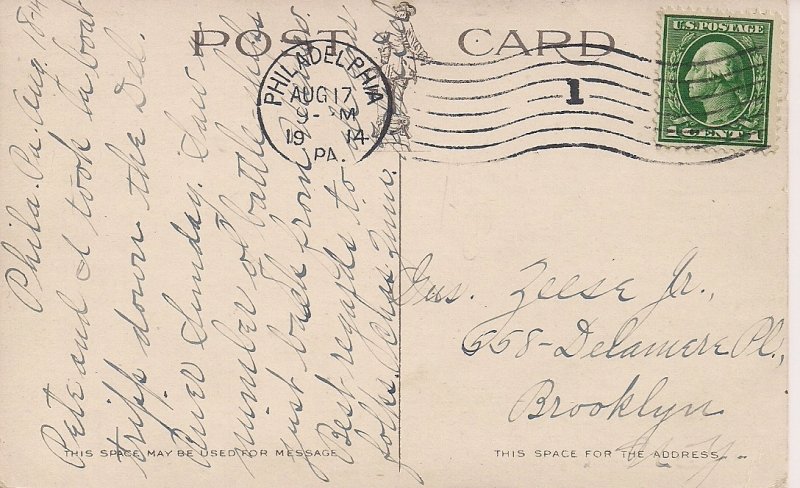 POST CARD
PHILADELPHIA
AUG 17
M
1914
PA.
1
U.S. POSTAGE
1 CENT 1
Phila. Pa. Aug. 18-14
Pete and I took a boat
tripp down the Del.
River Sunday. Saw a
number of battle ships
just back from
Best regards to your
folks. Chas
Gus. Zeese Jr.,
668-Delamere Pl.,
Brooklyn
N.Y.
THIS SPACE MAY BE USED FOR MESSAGE
THIS SPACE FOR THE ADDRESS